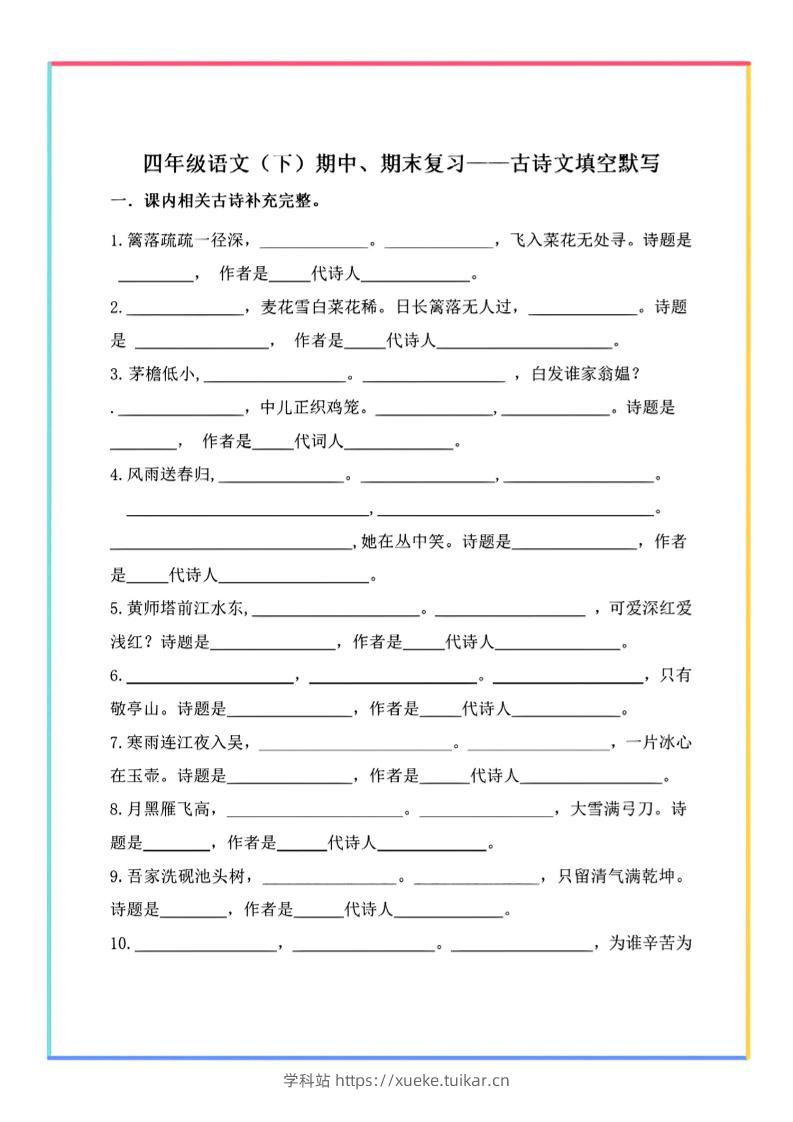 四年级语文（下）期中、期末复习——古诗文填空默写
一．课内相关古诗补充完整。
1.篱落疏疏一径深，_____________。_____________，飞入菜花无处寻。诗题是
_________， 作者是_____代诗人_____________。
2.______________，麦花雪白菜花稀。日长篱落无人过，_____________。诗题
是 ________________， 作者是_____代诗人_____________________。
3. 茅檐低小,_________________。_________________ ，白发谁家翁媪？
._______________，中儿正织鸡笼。______________,_____________。诗题是
________， 作者是_____代词人_____________。
4.风雨送春归,_______________。________________,__________________。
_____________________________,_________________________________。
_____________________________,她在丛中笑。诗题是_______________，作者
是_____代诗人__________________。
5.黄师塔前江水东,____________________。__________________ ，可爱深红爱
浅红？诗题是_______________，作者是_____代诗人_______________。
6.____________________，____________________。__________________，只有
敬亭山。诗题是_______________，作者是_____代诗人_____________。
7.寒雨连江夜入吴，_______________________。_________________，一片冰心
在玉壶。诗题是_______________，作者是______代诗人_________________。
8.月黑雁飞高，_____________________。________________，大雪满弓刀。诗
题是________，作者是______代诗人_____________。
9.吾家洗砚池头树，________________。_______________，只留清气满乾坤。
诗题是________，作者是______代诗人_____________。
10._________________，_________________。_________________，为谁辛苦为
学科站 https://xueke.tuikar.cn